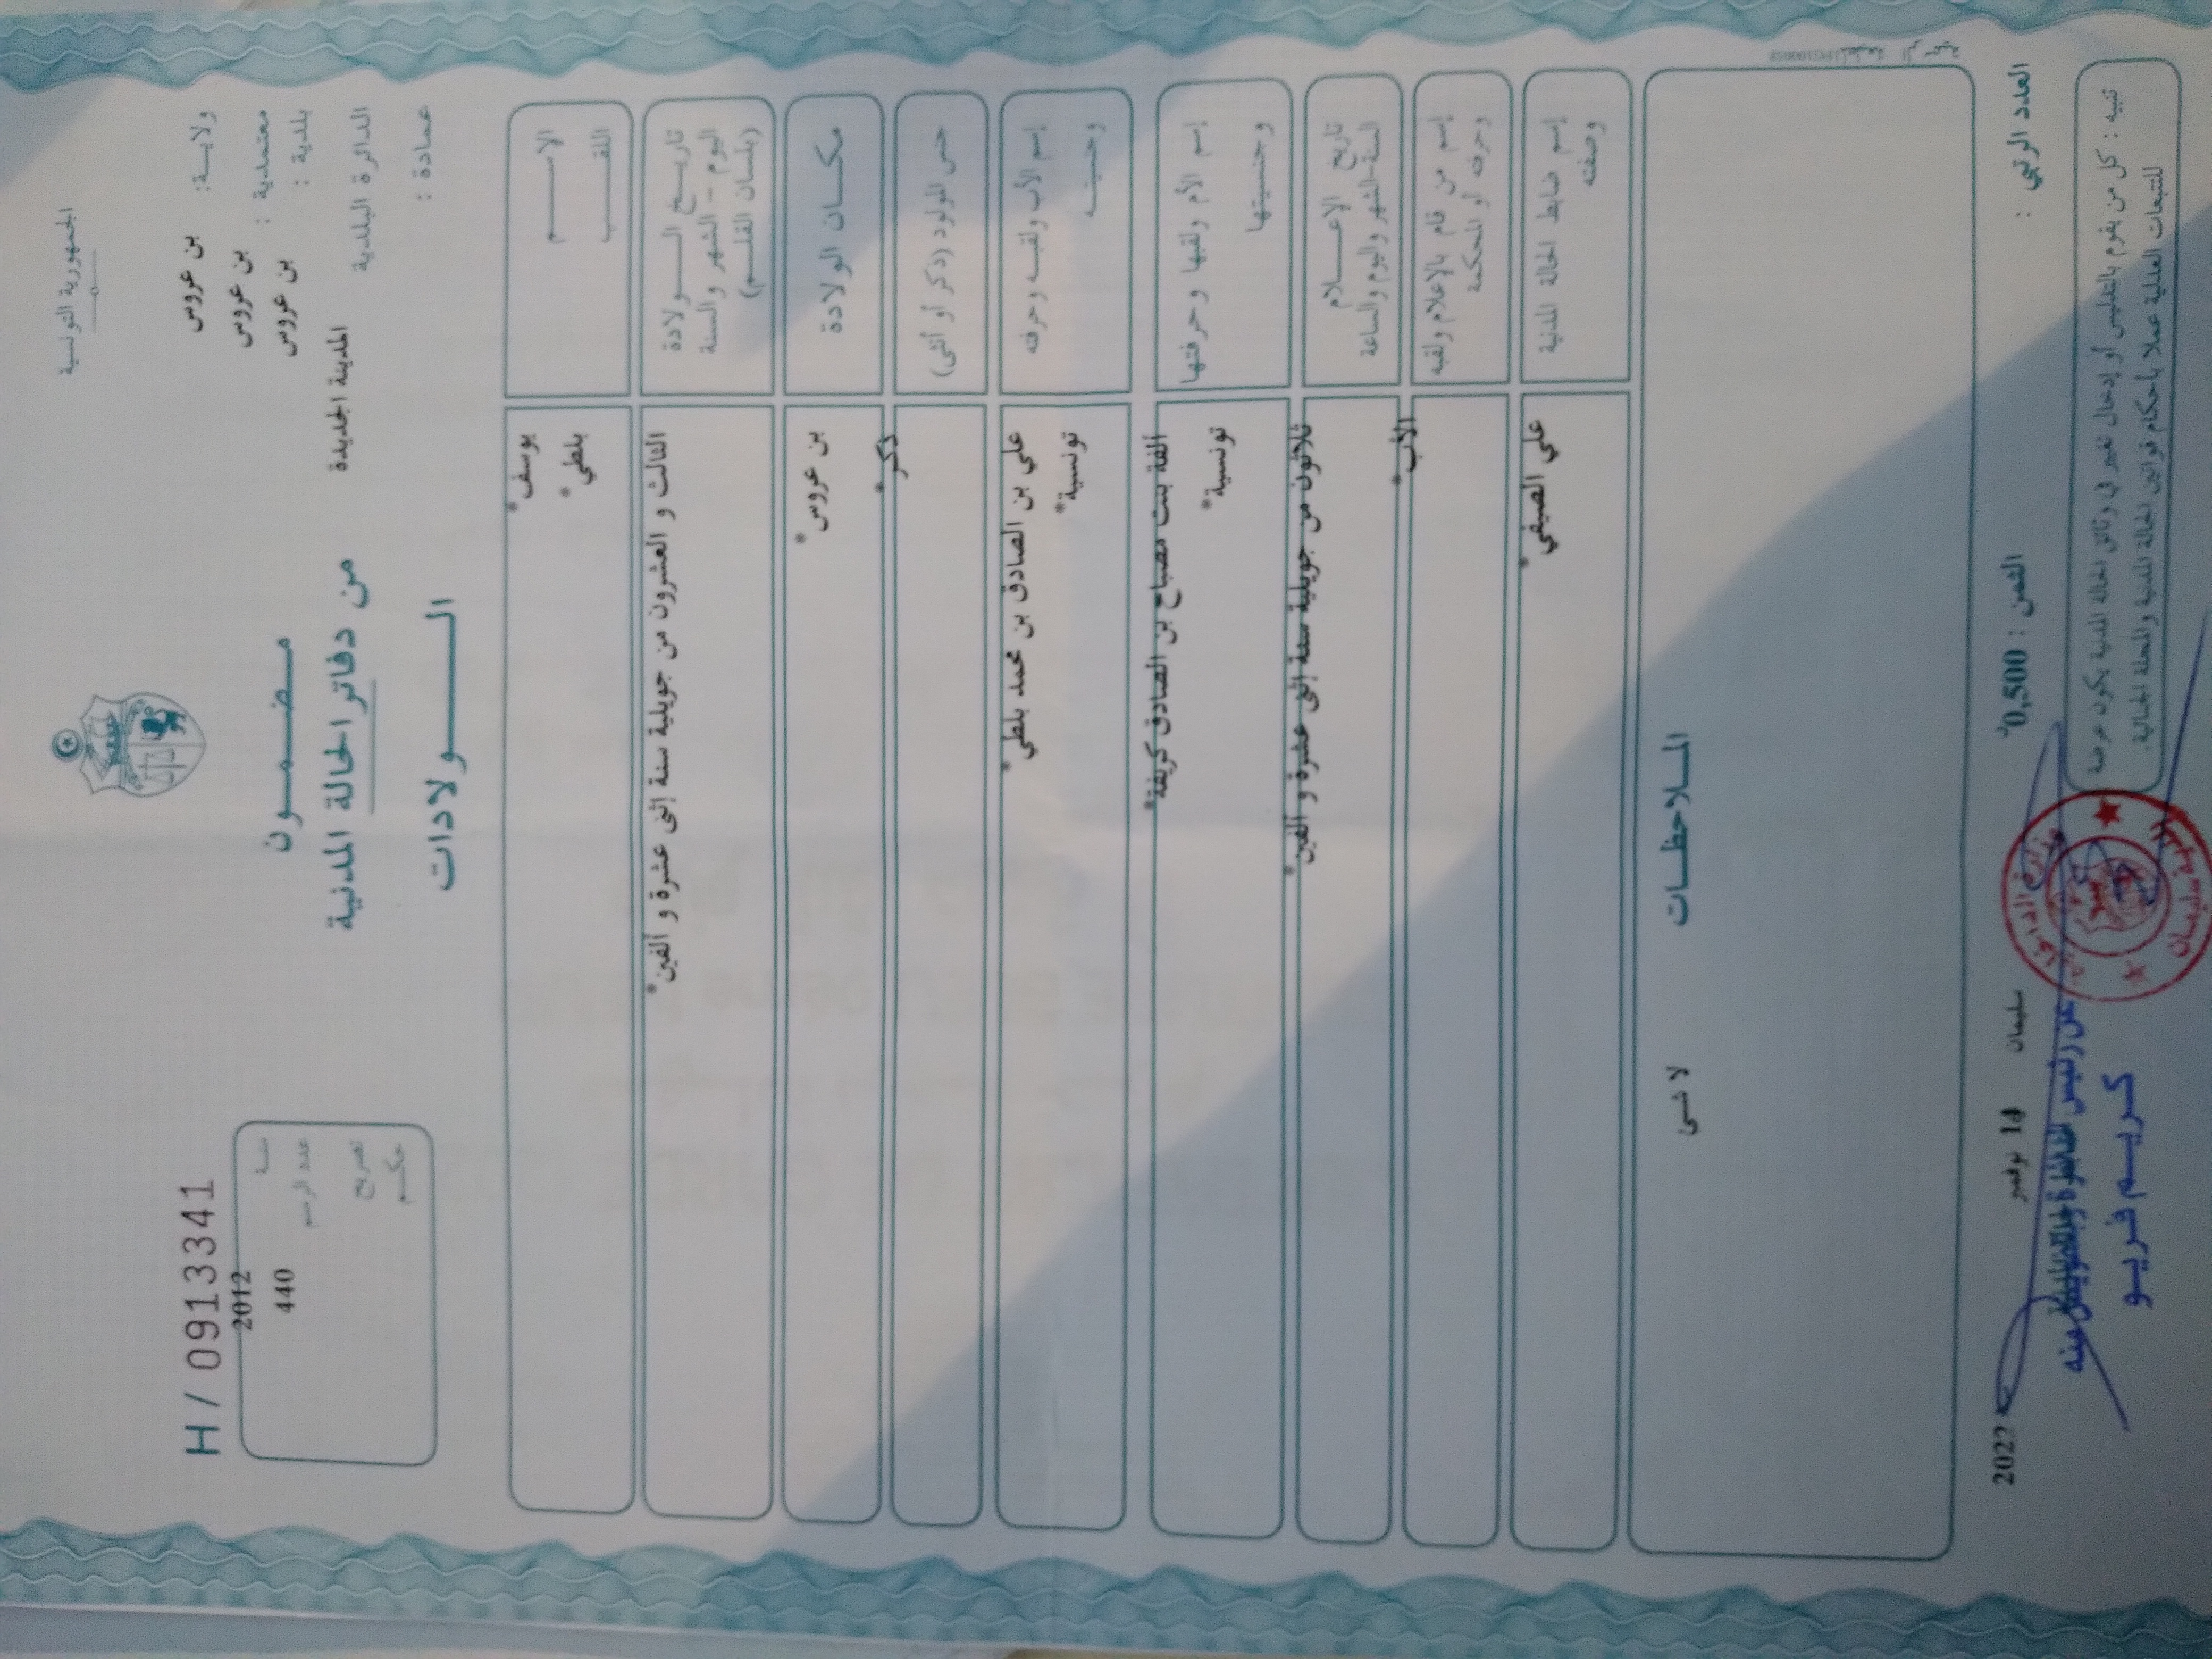 الجمهورية التونسية
ولاية: بن عروس
معتمدية : بن عروس
بلدية : بن عروس
الدائرة البلدية المدينة الجديدة
عمادة :
مضمون
من دفاتر الحالة المدنية
الولادات
H / 0913341
سنة 2012
عدد الرسم 440
تصريح
حكم
الاسم يوسف*
اللقب بلطي*
تاريخ الولادة
اليوم - الشهر والسنة
(بلسان القلم)
الثالث و العشرون من جويلية سنة إثنى عشرة و ألفين*
مكان الولادة بن عروس*
جنس المولود (ذكر أو أنثى) ذكر*
إسم الأب ولقبه وحرفته علي بن الصادق بن محمد بلطي*
وجنسيته تونسية*
إسم الأم ولقبها وحرفتها ألفة بنت مصباح بن الصادق كريفة*
وجنسيتها تونسية*
تاريخ الإعلام
السنة-الشهر واليوم والساعة
ثلاثون من جويلية سنة إثنى عشرة و ألفين*
إسم من قام بالإعلام ولقبه
وحرفته أو المحكمة
الأب*
إسم ضابط الحالة المدنية
وصفته
علي الصيفي*
الملاحظات
لا شئ
العدد الرتبي :
الثمن : 0,500د
سليمان 14 نوفمبر 2022
تنبيه : كل من يقوم بالتدليس أو إدخال تغيير في وثائق الحالة المدنية يكون عرضة
للتتبعات العدلية عملا بأحكام قوانين الحالة المدنية والمجلة الجزائية.
كريم فريو